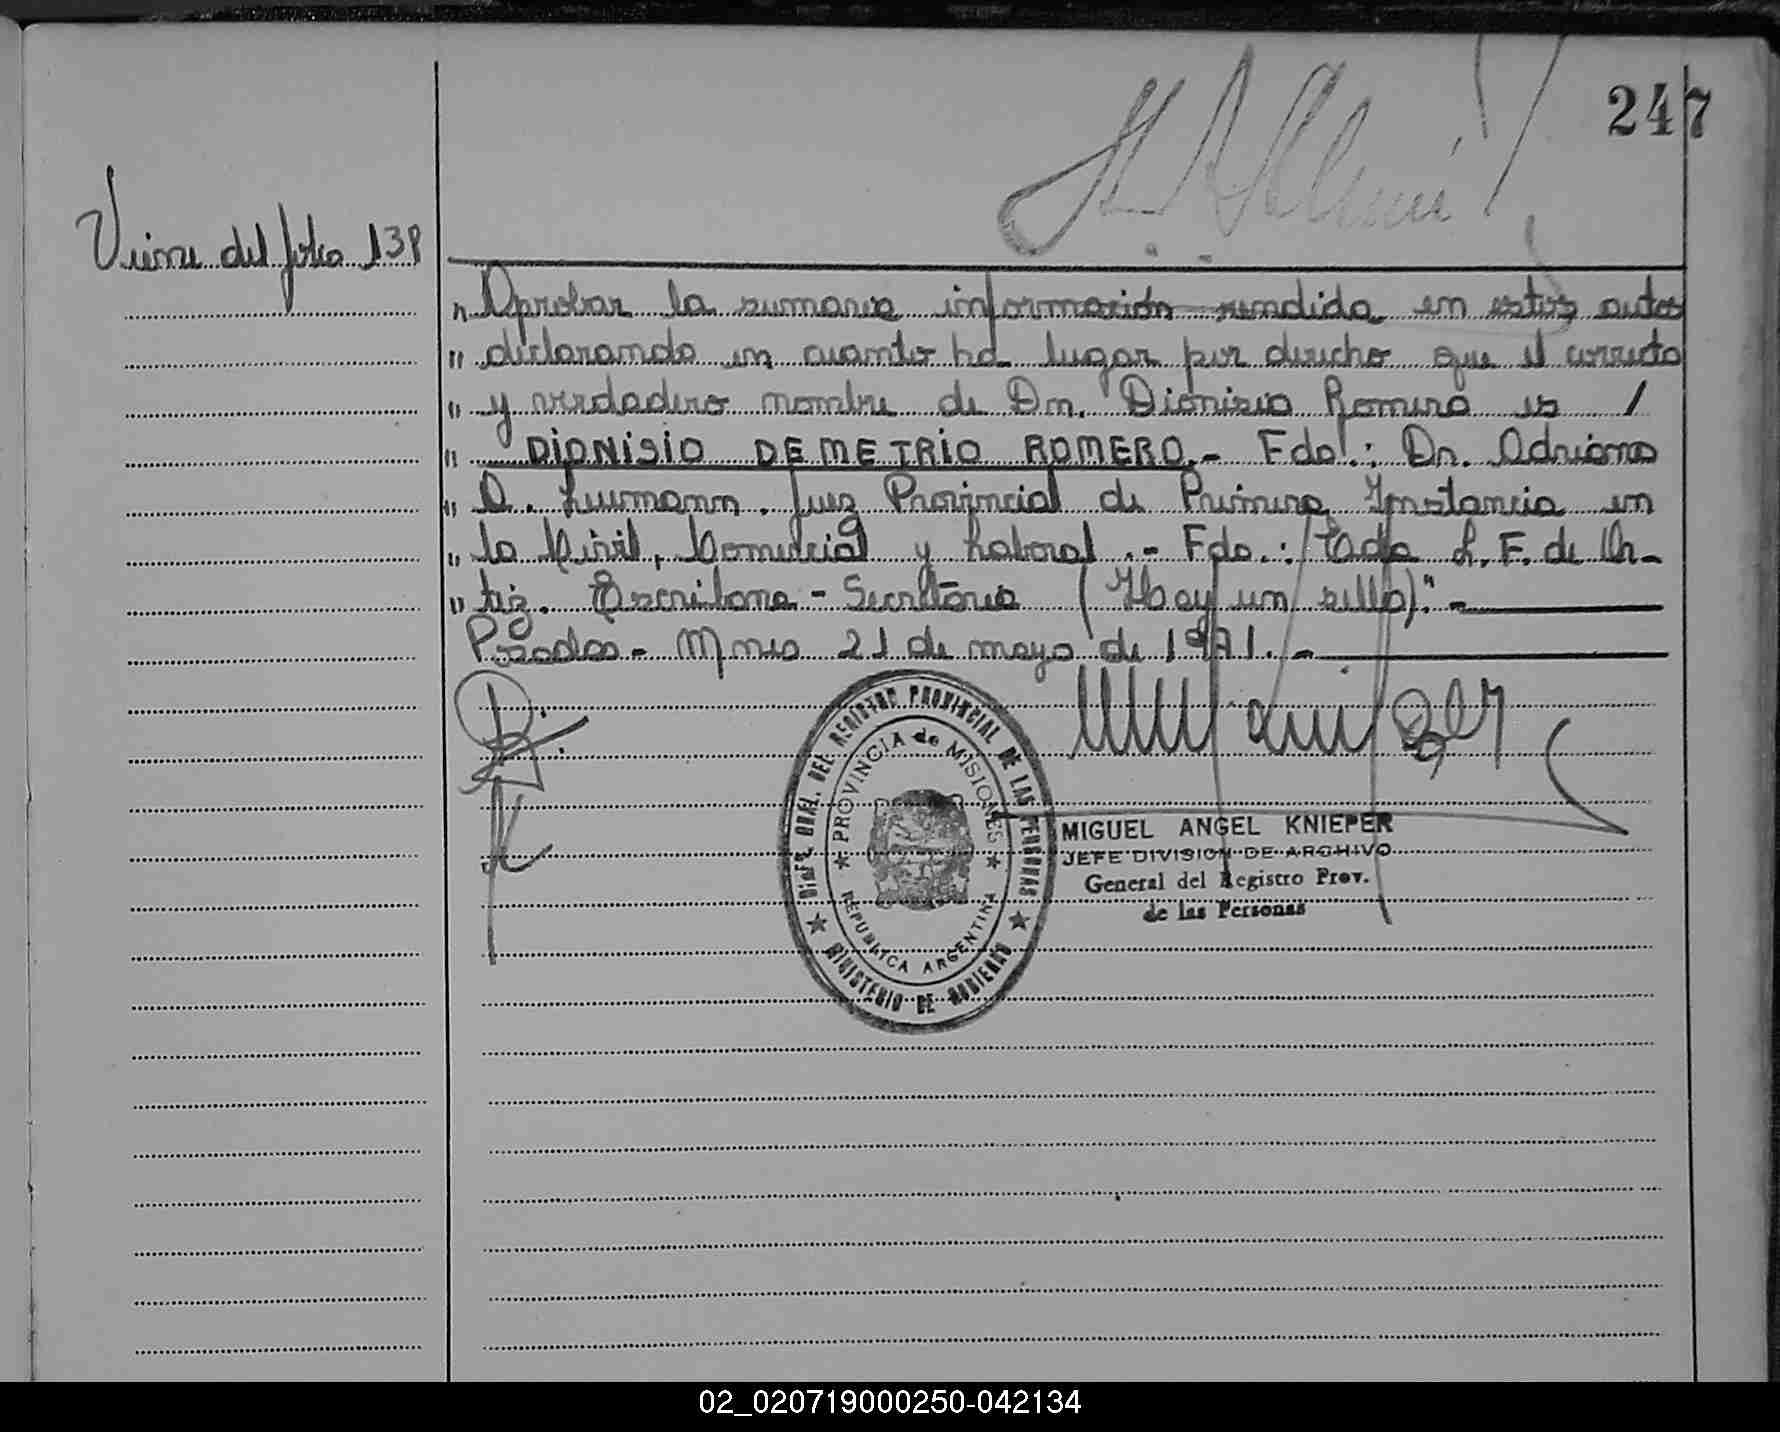 247
Viene del folio 138
" Aprobar la sumaria información rendida en estos autos
" declarando en cuanto ha lugar por derecho que el correcto
" y verdadero nombre de Dn. Dionisio Romero es /
" DIONISIO DEMETRIO ROMERO.- Fdo.: Dr. Adriano
" O. Luumann. Juez Provincial de Primera Instancia en
" lo Civil, Comercial y Laboral.- Fdo.: Elda L. F. de Or-
" tiz. Escribana - Secretaria (Hay un sello)."-
Posadas - Mnes 21 de mayo de 1971.-
DIREC. GRAL. DEL REGISTRO PROVINCIAL DE LAS PERSONAS
PROVINCIA de MISIONES
REPUBLICA ARGENTINA
MINISTERIO DE GOBIERNO
MIGUEL ANGEL KNIEPER
JEFE DIVISION DE ARCHIVO
General del Registro Prov.
de las Personas
02_020719000250-042134